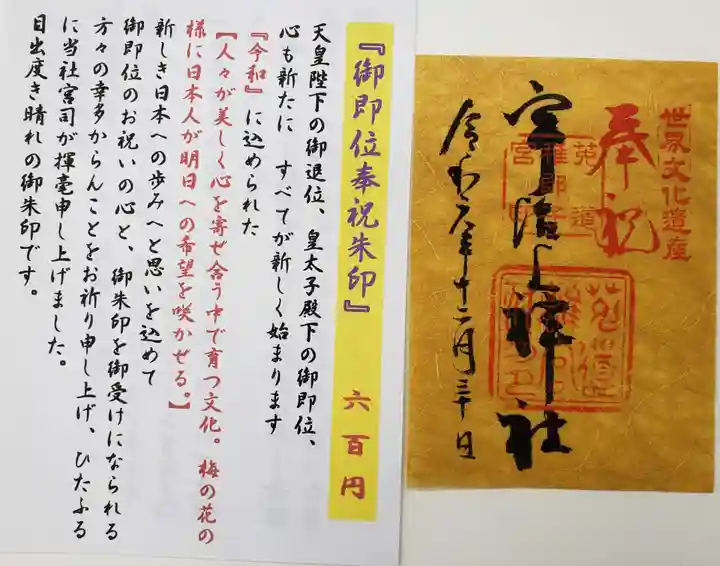 世界文化遺産
奉祝
宇治上神社
令和元年十二月三十日
『御即位奉祝朱印』 六百円
天皇陛下の御退位、皇太子殿下の御即位、
心も新たに すべてが新しく始まります
『令和』に込められた
【人々が美しく心を寄せ合う中で育つ文化。梅の花の
様に日本人が明日への希望を咲かせる。】
新しき日本への歩みへと思いを込めて
御即位のお祝いの心と、御朱印を御受けになられる
方々の幸多からんことをお祈り申し上げ、ひたふる
に当社宮司が揮毫申し上げました。
目出度き晴れの御朱印です。